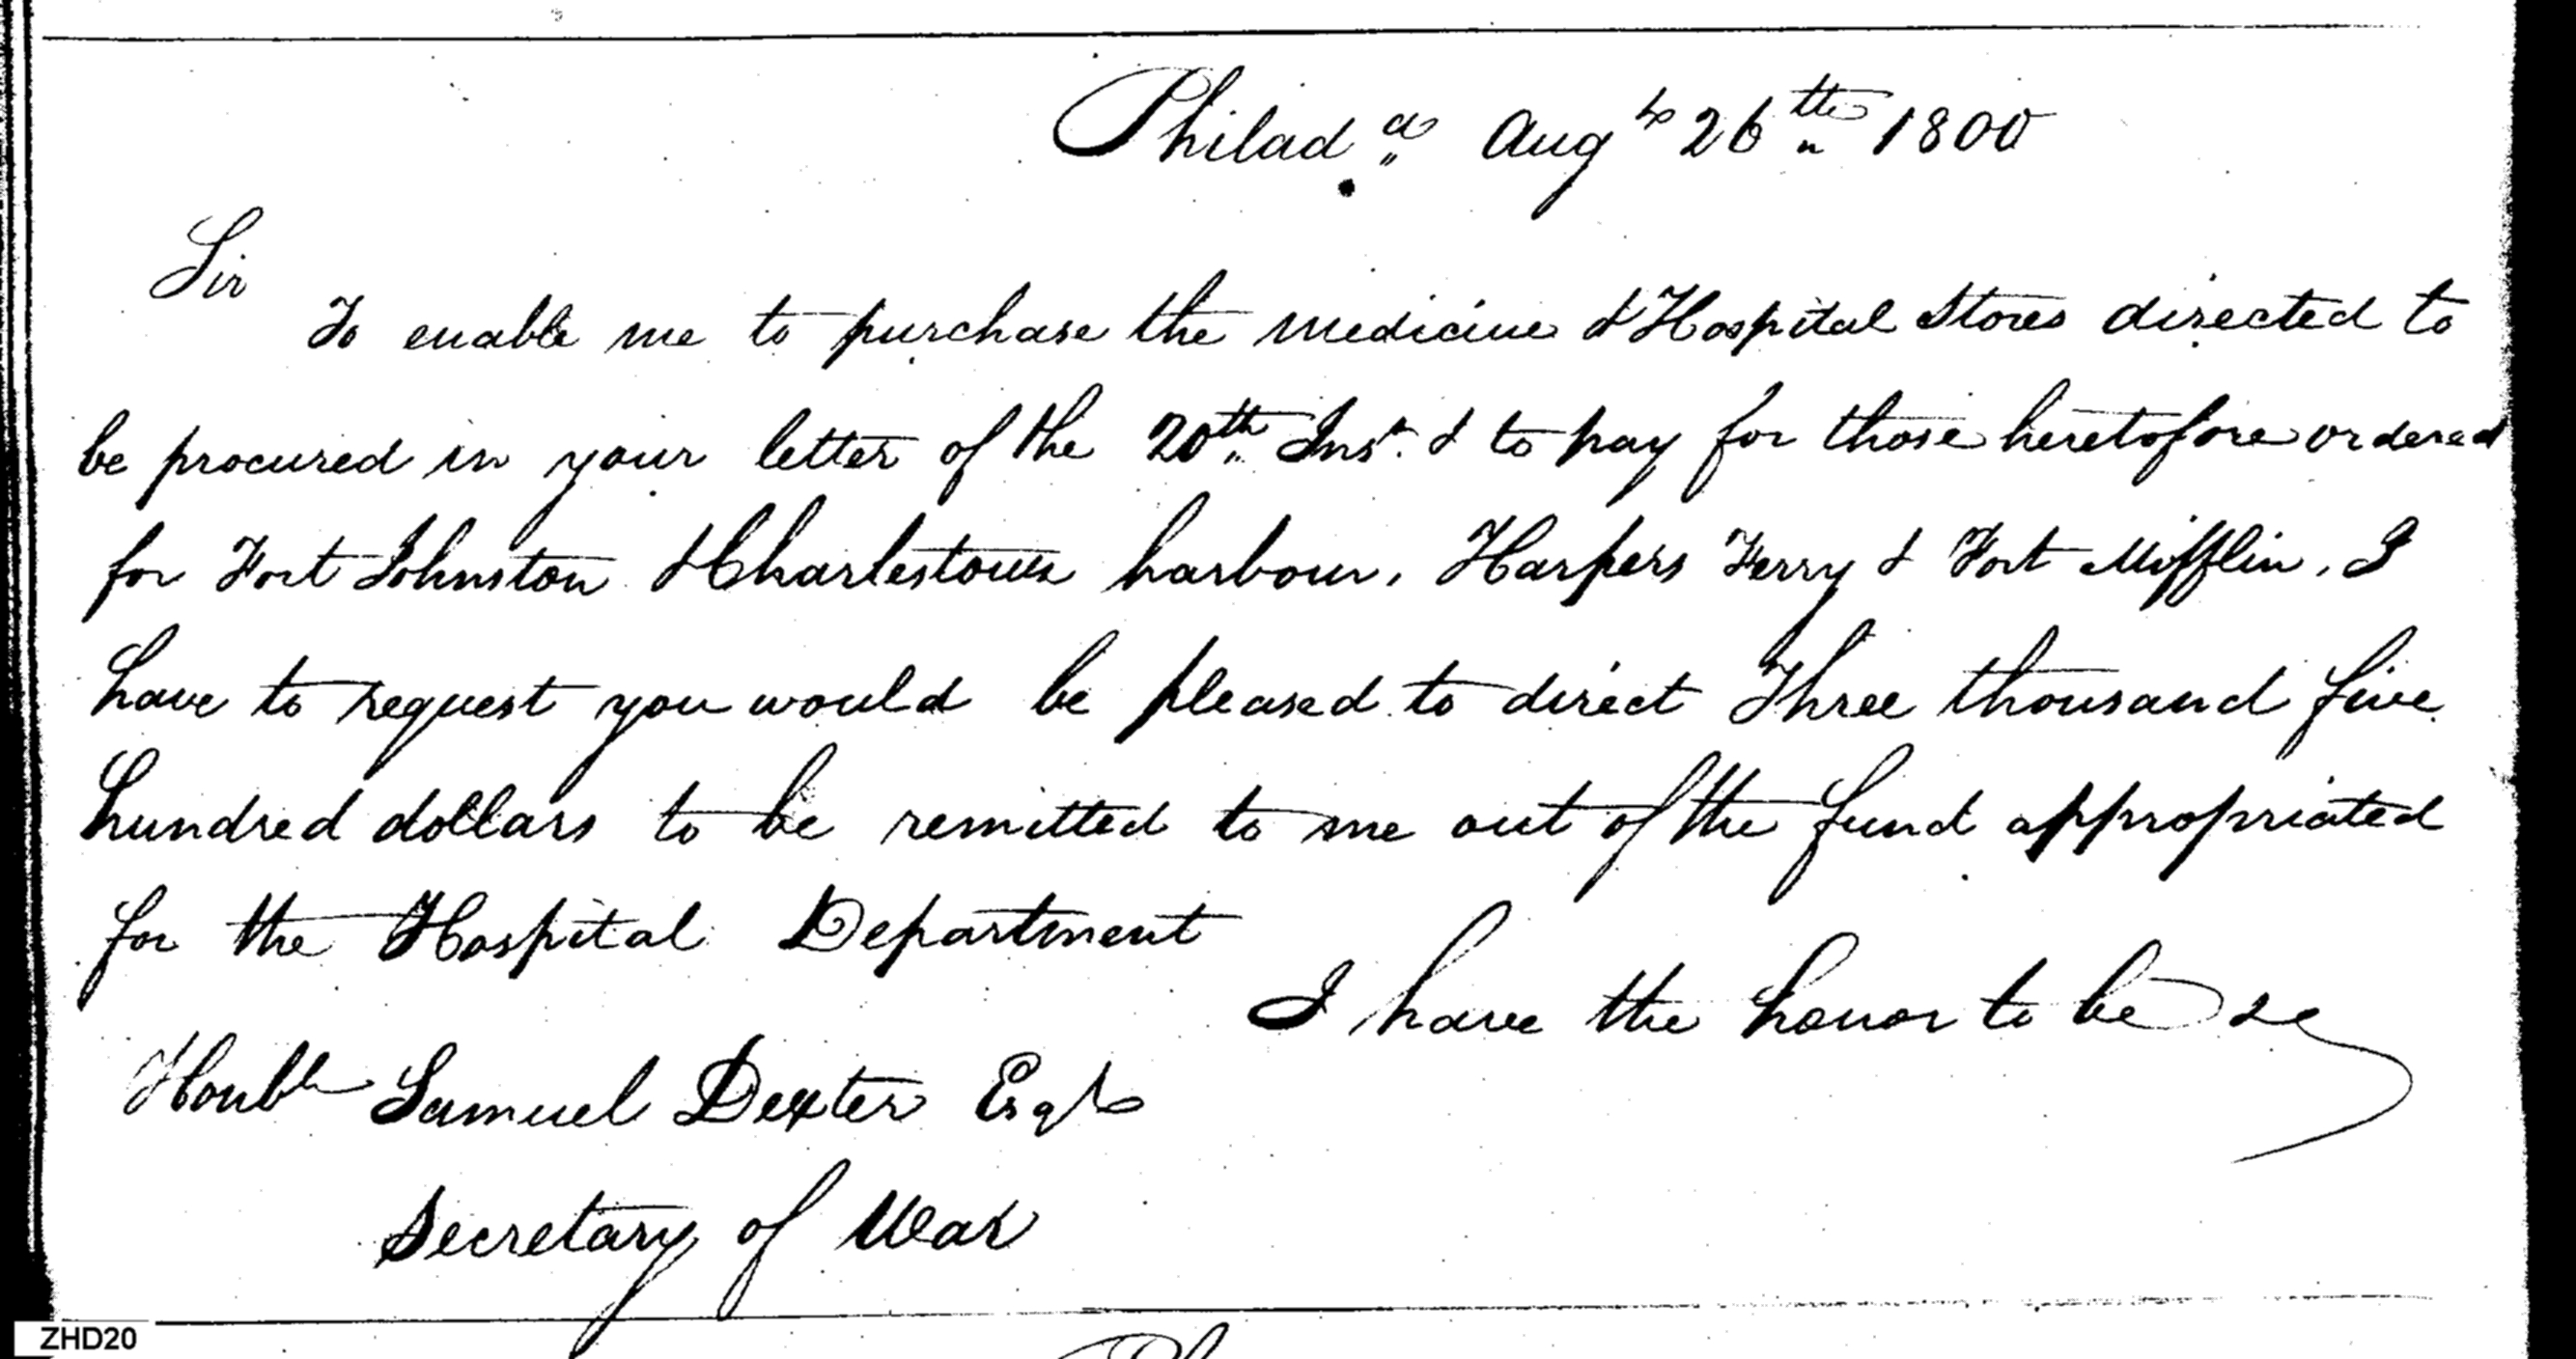 Philad.a Augt 26th 1800
Sir
To enable me to purchase the medicine & Hospital Stores directed to
be procured in your letter of the 20th Inst. & to pay for those heretofore ordered
for Fort Johnston & Charlestown harbour, Harpers Ferry & Fort Mifflin, I
have to request you would be pleased to direct Three thousand five
hundred dollars to be remitted to me out of the fund appropriated
for the Hospital Department
I have the honor to be &c
Honble Samuel Dexter Esqr
Secretary of War
ZHD20